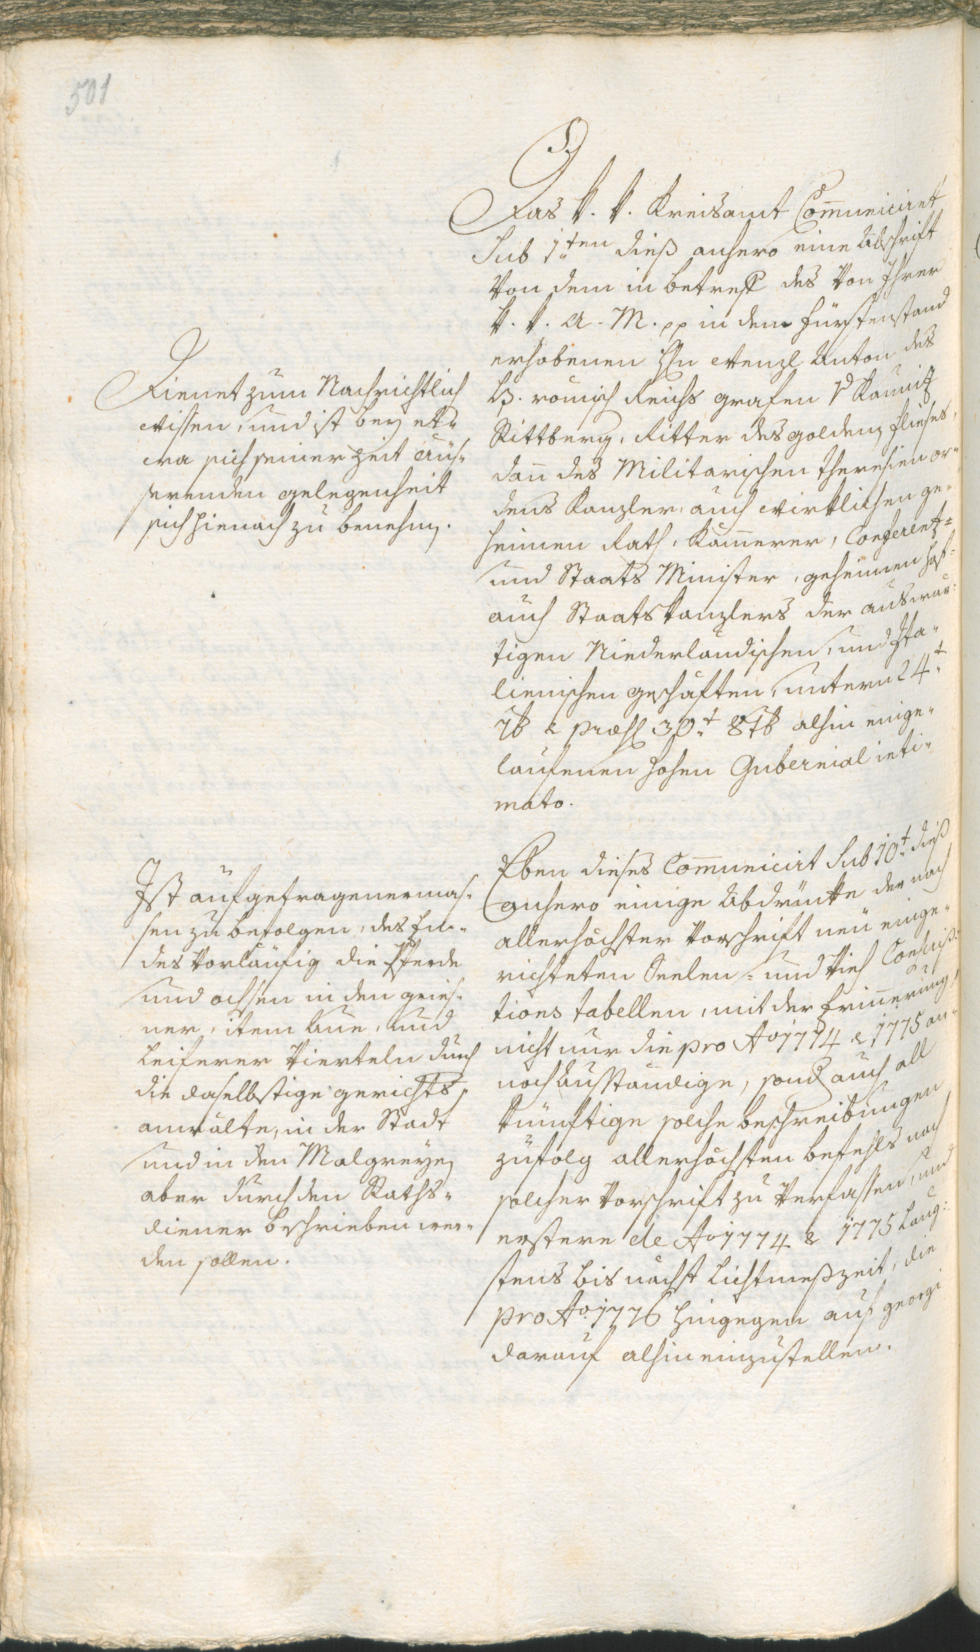 501
Das k. k. Kreisamt Com̄unicirt
sub 1ten dieß anhero eine Abschrift
von dem in betreff des von Ihrer
k. k. A. M. pp in dem fürstenstand
erhobenen H̄n Wenzl Anton des
H. römisch Reichs grafen v Kaunitz
Rittberg, Ritter des golden flieses,
dan̄ des Militarischen Theresien or-
dens Kanzler, auch wirklichen ge-
heimen Rath, Kam̄erer, Conferentz-
und Staats Minister, geheimen Hof-
auch Staatskanzlers der auswär-
tigen Niederländischen, und Ita-
lienischen geschäften, unterm 24t
7b & præs 30t 8b alhin einge-
laufenen hohen Gubernial inti-
mato.
Dienet zum Nachrichtlich
wissen, und ist bey et-
wa sich seiner Zeit äus-
serenden gelegenheit
sich hienach zu benehm.
Eben dieses Com̄unicirt sub 10t dieß
anhero einige Abdrücke der nach
allerhöchster Vorschrift neü einge-
richteten Seelen- und Vieh Conscrip-
tions tabellen, mit der Erin̄erung,
nicht nur die pro Ao 1774 & 1775 an-
noch ausständige, sond auch all
künftige solche beschreibungen
zufolg allerhöchsten befehls nach
solcher Vorschrift zu verfassen, und
erstere de Ao 1774 & 1775 läng-
stens bis nächst Lichtmeßzeit, die
pro Ao 1776 hingegen auf georgi
darauf alhin einzustellen.
Ist aufgetragenermas-
sen zu befolgen, des En-
des vorläufig die Pferde
und ochsen in den gries-
ner, item Aue, und
Leiferer Vierteln durch
die daselbstige gerichts
anwälte, in der Stadt
und in den Malgreyen
aber durch den Raths-
diener beschrieben wer-
den sollen.